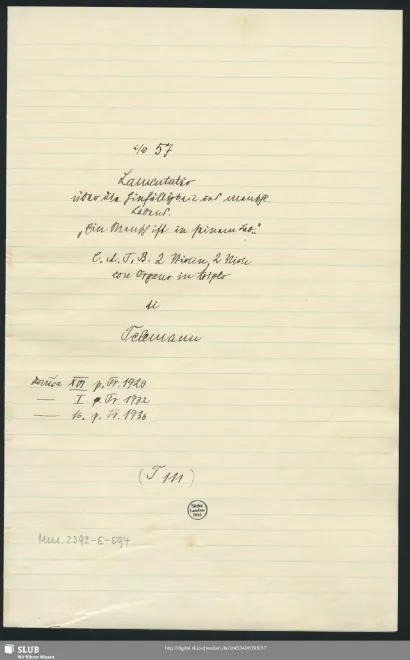 No 57
Lamentatio
über die Hinfälligkeit des menschl.
Lebens.
"Ein Mensch ist in seinem Leb.."
C. A. T. B. 2 Violin, 2 Viole
con Organo in triplo
di
Telemann
XVI p. Tr. 1920
— I p. Tr. 1932
— 16. p. Tr. 1936
(T 111)
Mus. 2392-E-594
SLUB
Wir führen Wissen.